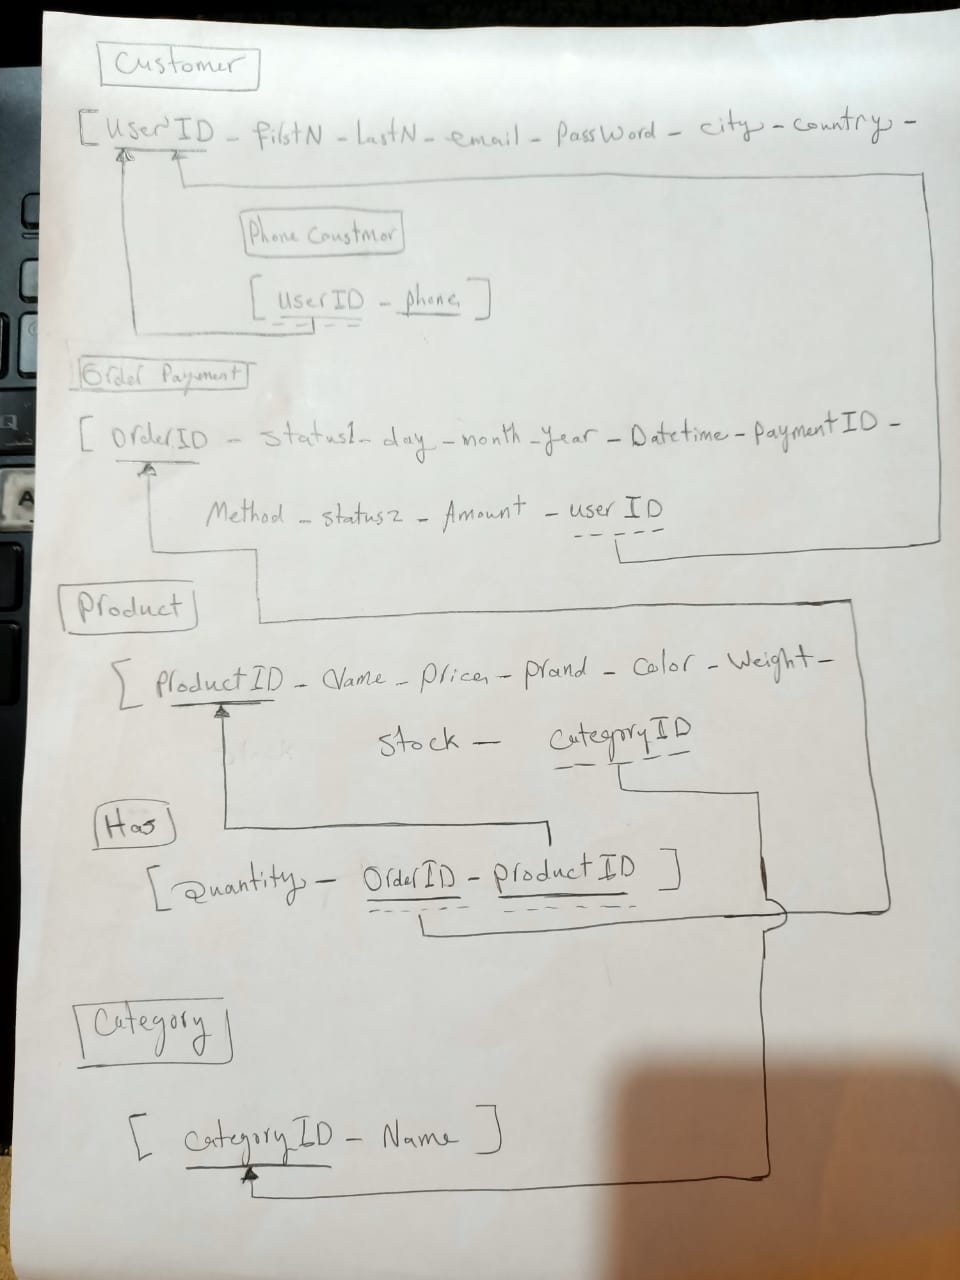 Customer
[ UserID - firstN - LastN - email - PassWord - city - country -
Phone Coustmor
[ userID - phone ]
Order Payement
[ OrderID - status1 - day - month - year - Datetime - paymentID -
Method - status2 - Amount - user ID
Product
[ ProductID - Name - Price - prand - color - Weight -
Stock - categoryID
Has
[ Quantity - OrderID - productID ]
Category
[ categoryID - Name ]